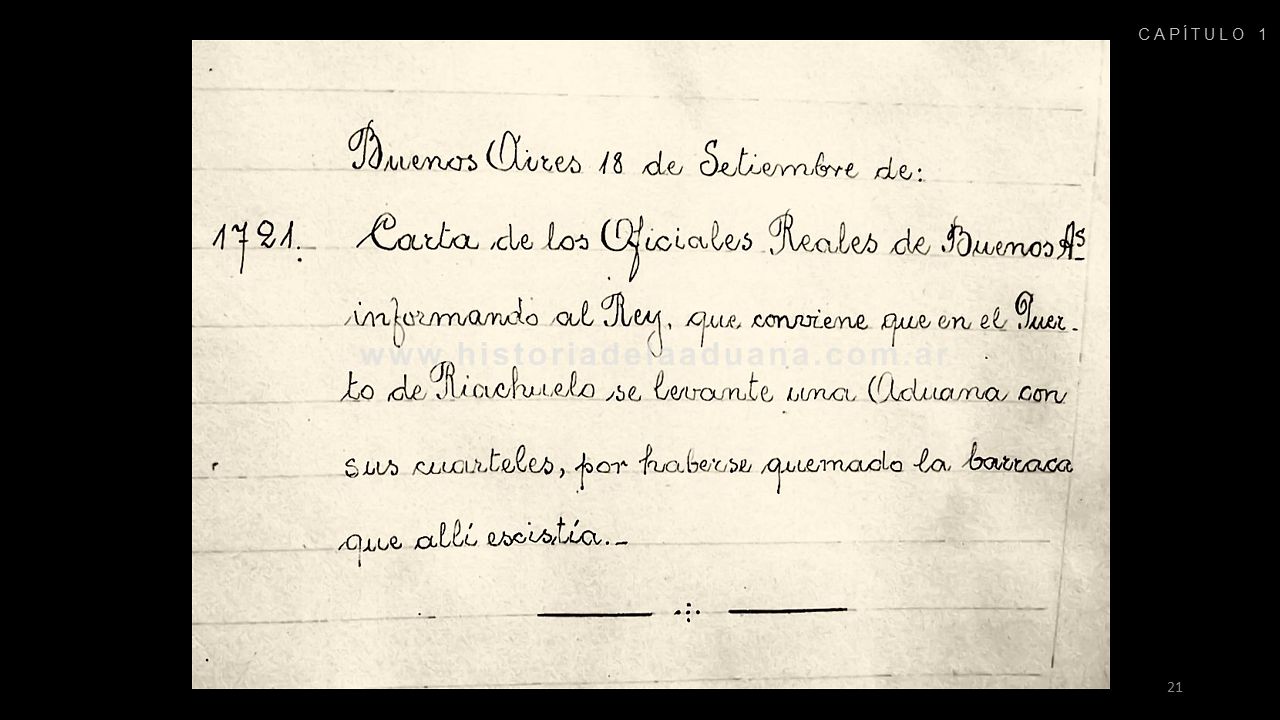 CAPÍTULO 1
Buenos Aires 18 de Setiembre de:
1721. Carta de los Oficiales Reales de Buenos As
informando al Rey, que conviene que en el Puer-
to de Riachuelo se levante una Aduana con
sus cuarteles, por haberse quemado la barraca
que allí escistía.-
www.historiadelaaduana.com.ar
21